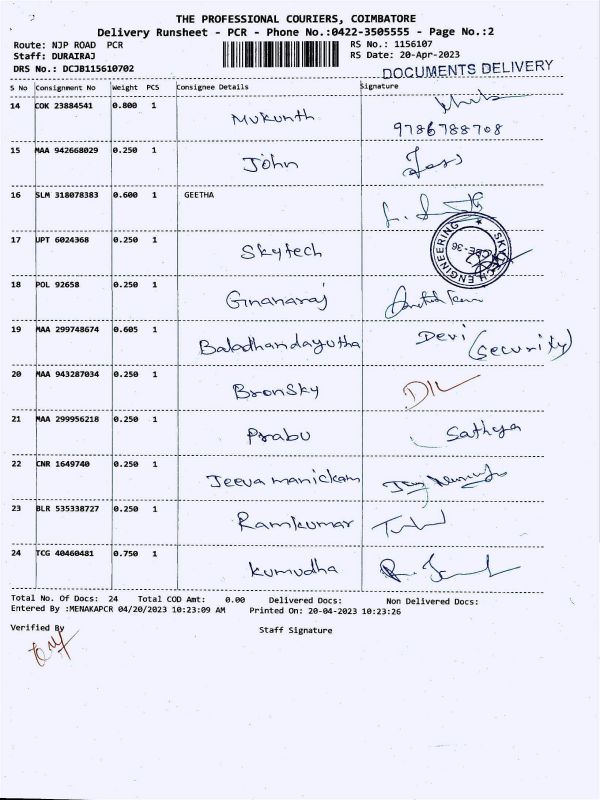 THE PROFESSIONAL COURIERS, COIMBATORE
Delivery Runsheet - PCR - Phone No.:0422-3505555 - Page No.:2
Route: NJP ROAD PCR
RS No.: 1156107
Staff: DURAIRAJ
RS Date: 20-Apr-2023
DRS No.: DCJB115610702
DOCUMENTS DELIVERY
S No Consignment No Weight PCS Consignee Details Signature
14 COK 23884541 0.800 1 Mukunth
9786788708
15 MAA 942668029 0.250 1 John
16 SLM 318078383 0.600 1 GEETHA
17 UPT 6024368 0.250 1 Skytech
SKYTECH ENGINEERING
CBE-36
18 POL 92658 0.250 1 Gnanaraj
19 MAA 299748674 0.605 1 Baladhandayutha Devi (security)
20 MAA 943287034 0.250 1 Bronsky
21 MAA 299956218 0.250 1 Prabu Sathya
22 CNR 1649740 0.250 1 Jeeva manickam
23 BLR 535338727 0.250 1 Ramkumar
24 TCG 40460481 0.750 1 kumudha
Total No. Of Docs: 24 Total COD Amt: 0.00 Delivered Docs: Non Delivered Docs:
Entered By :MENAKAPCR 04/20/2023 10:23:09 AM Printed On: 20-04-2023 10:23:26
Verified By
Staff Signature